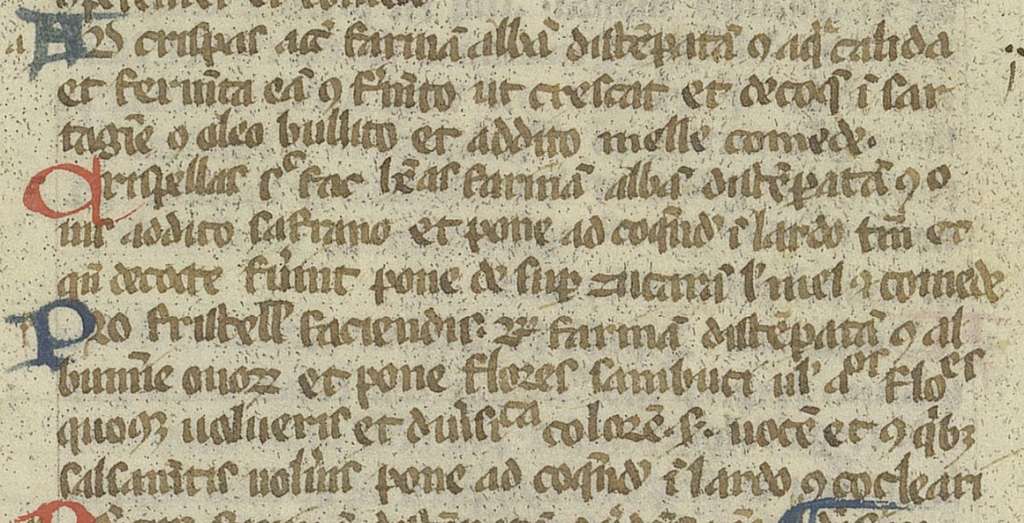 AD crispas acc̄ farinā albā distēpatā ꝯ aqᵃ calida
et fermēta eā ꝯ fm̄to ut crescat et decoq̄ ī sar
tagīe ꝯ oleo bullito et addito melle comede.
Crispellas sᶜ fac hēas farinā albā distēperatā ꝯ o
uis addito safrano et pone ad coqn̄dū ī lardo tm̄ et
qn̄ decocte fūint pone de sup zucarū ł mel ⁊ comede
PRo fristell' faciendis. R̷ farinā distēperatā ꝯ al
bumīe ouoꝝ et pone flores sambuci uł aᵒˢ floᵉˢ
quoꝝ uolueris et diu̓siᶜᵃ colorē .s. uocē et ꝯ qⁱbꝫ
salsam̄tis uolu̓is pone ad coqn̄dū ī lardo ꝯ cocleari